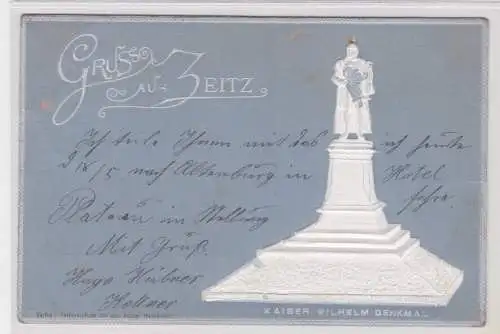 GRUSS
AUS ZEITZ
Ich teile Ihnen mit das ich heute
d 18/5 nach Altenburg in Hotel
Plateau in Stellung fahre.
Mit Gruß
Hugo Hübner
Kellner
KAISER WILHELM DENKMAL